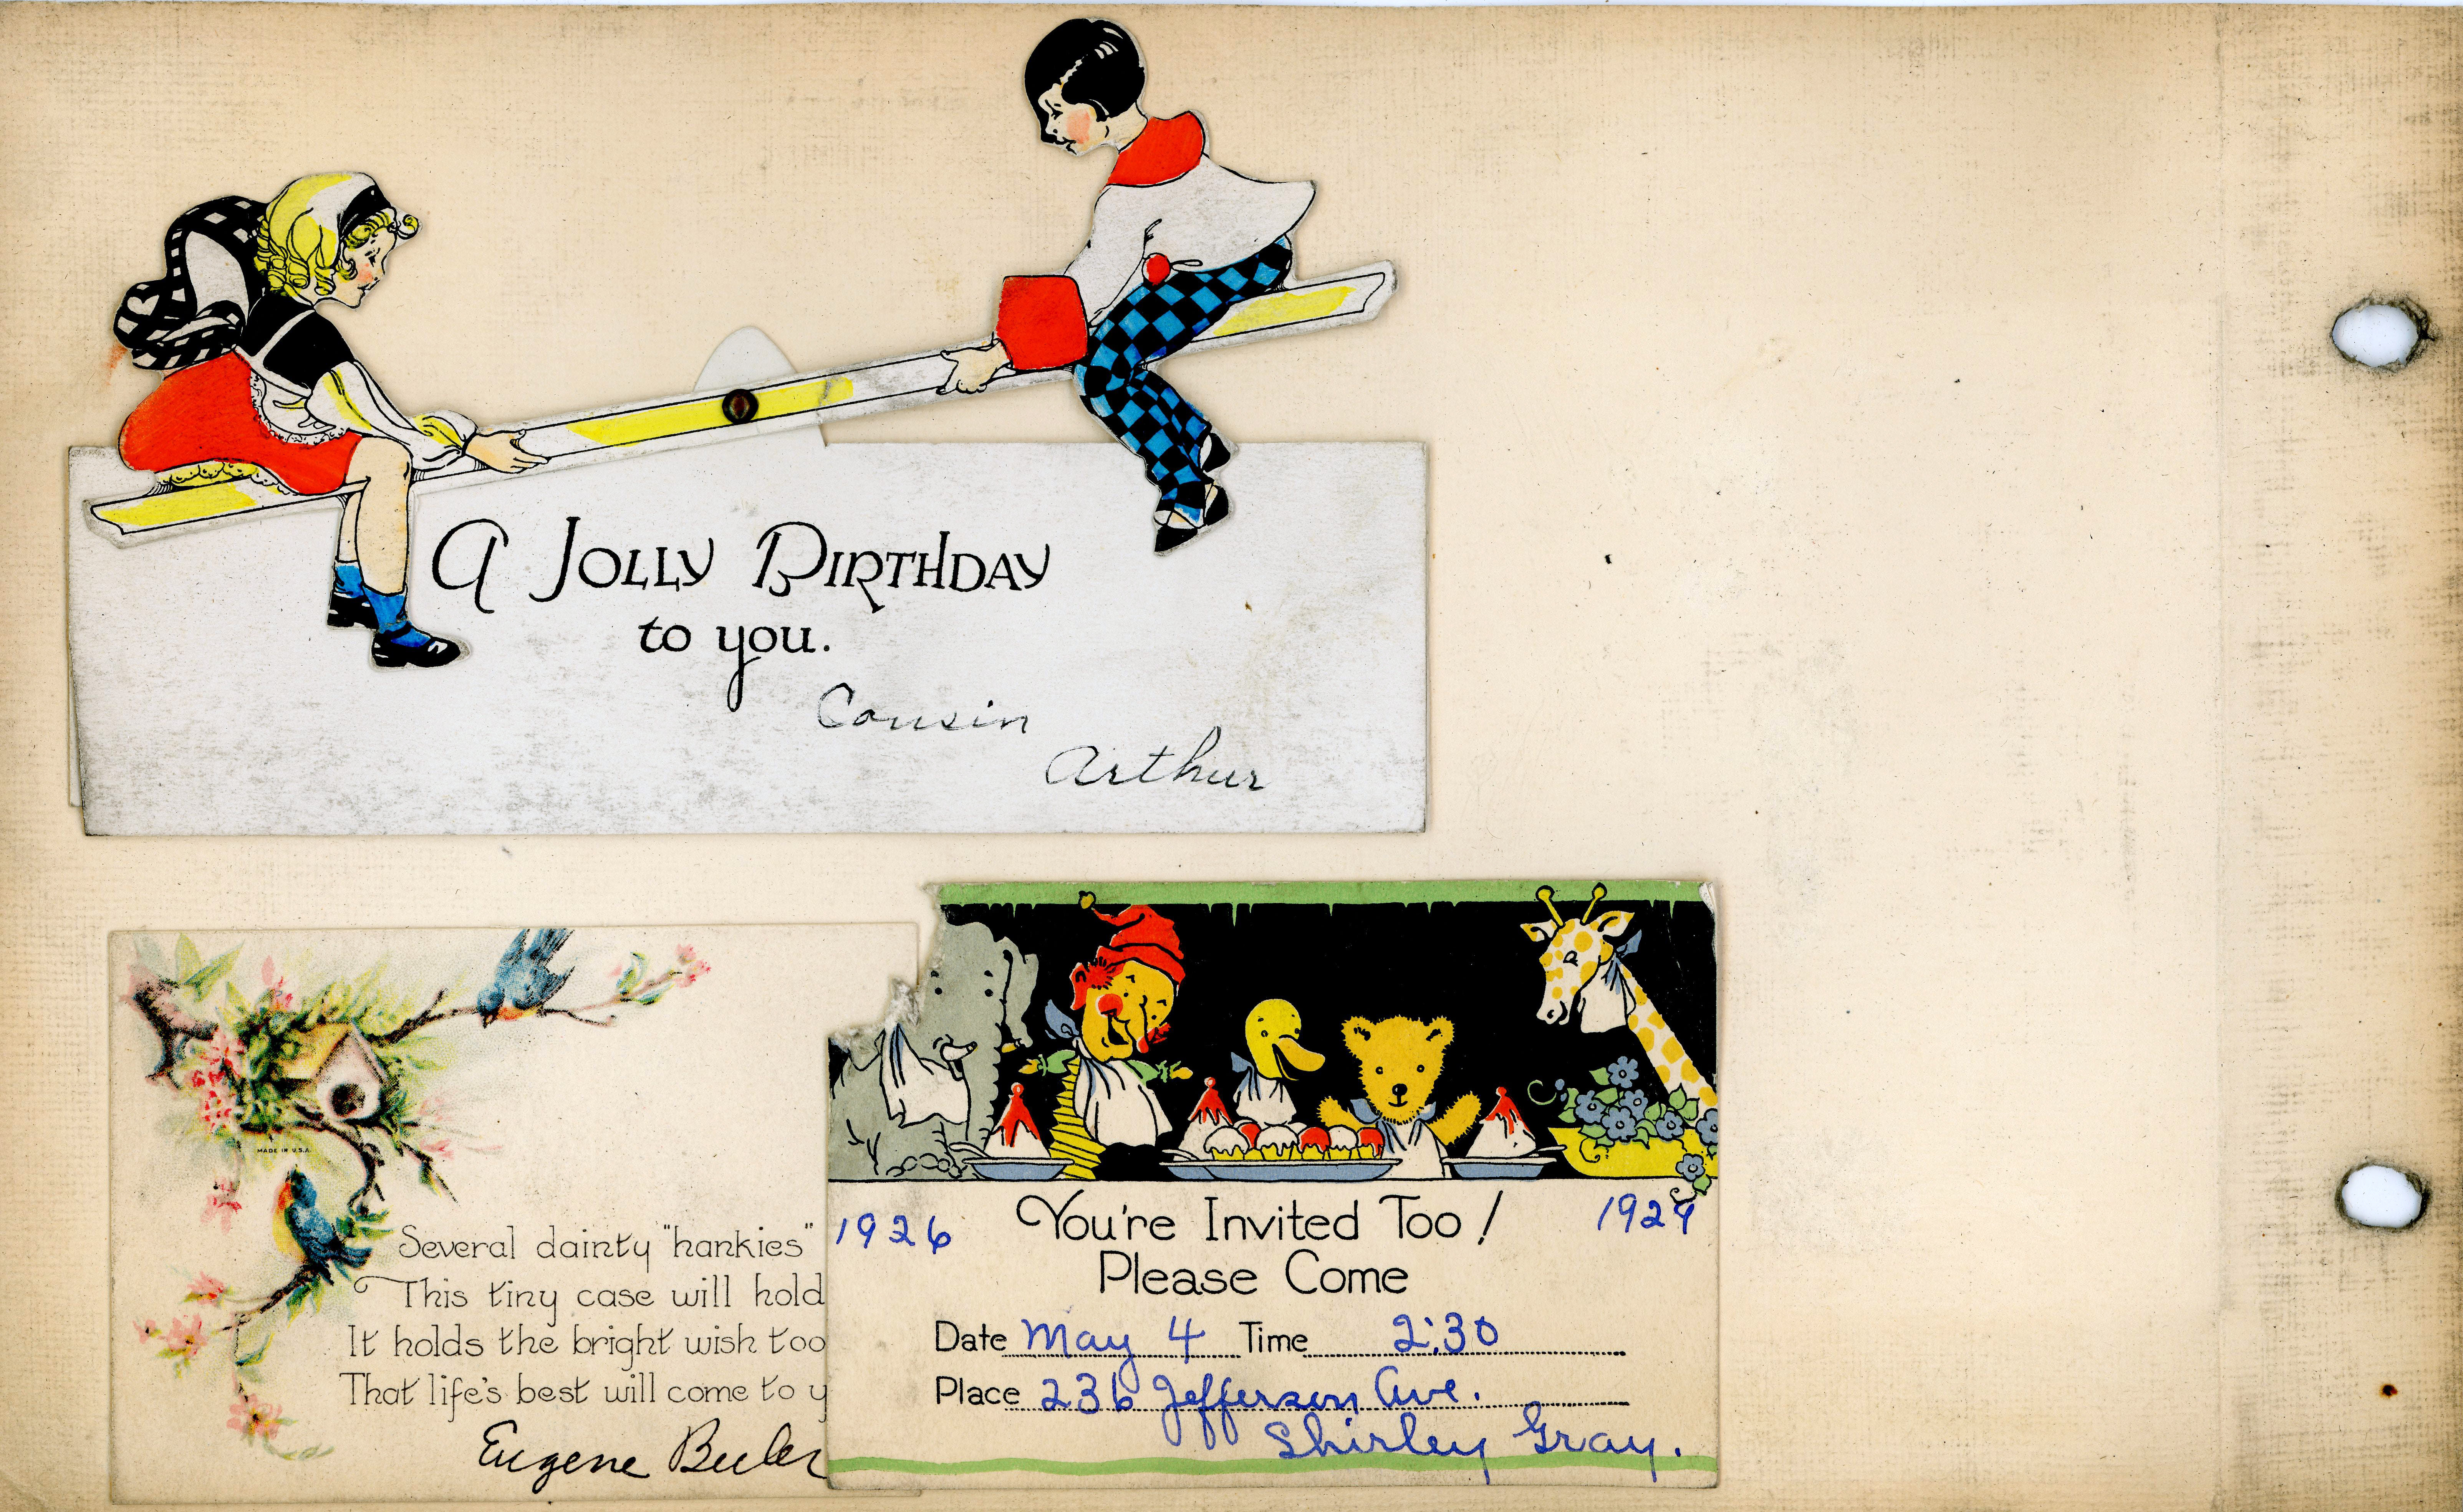 A JOLLY BIRTHDAY
to you.
Cousin
Arthur
MADE IN U.S.A.
Several dainty "hankies"
This tiny case will hold
It holds the bright wish too
That life's best will come to y
Eugene
1926 You're Invited Too! 1929
Please Come
Date May 4 Time 2:30
Place 236 Jefferson Ave.
Shirley Gray.